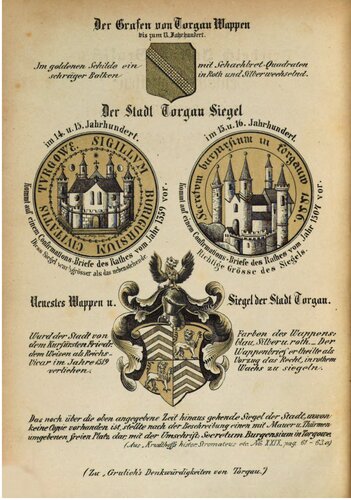 Der Grafen von Torgau Wappen
bis zum 13. Jahrhundert.
Im goldenen Schilde ein
schräger Balken
mit Schachbret-Quadraten
in Roth und Silber wechselnd.
Der Stadt Torgau Siegel
im 14. u. 15. Jahrhundert.
SIGILLVM BURGENSIUM CIVITATIS TURGOWE
Kommt auf einem Confirmations-Briefe des Rathes vom Jahr 1359 vor.
Dieses Siegel war größer als das nebenstehende
im 15. u. 16. Jahrhundert.
Secretum burgensium in Torgaw 1486
Kommt auf einem Confirmations-Briefe des Rathes vom Jahr 1507 vor.
Richtige Grösse des Siegels.
Neuestes Wappen u.
Siegel der Stadt Torgau.
Wurd der Stadt von
dem Kurfürsten Friedr.
dem Weisen als Reichs-
Vicar im Jahre 1519
verliehen.
Farben des Wappens:
blau, Silber u. roth. _ Der
Wappenbrief ertheilte als
Vorzug das Recht, in rothem
Wachs zu siegeln.
Das noch über die oben angegebene Zeit hinaus gehende Siegel der Stadt, wovon
keine Copie vorhanden ist, stellte nach der Beschreibung einen mit Mauer u. Thürmen
umgebenen freien Platz dar mit der Umschrift: Secretum Burgensium in Torgowe.
(Aus histor. Stromateus etc. No XXIX. pag. 61-63.)
(Zu Grulich's Denkwürdigkeiten von Torgau.)